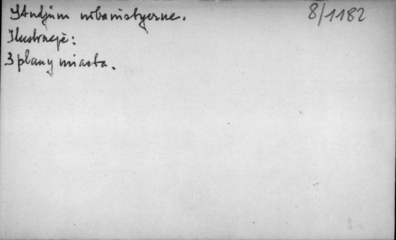 Studjum urbanistyczne. 8/1182
Ilustracje:
3 plany miasta.